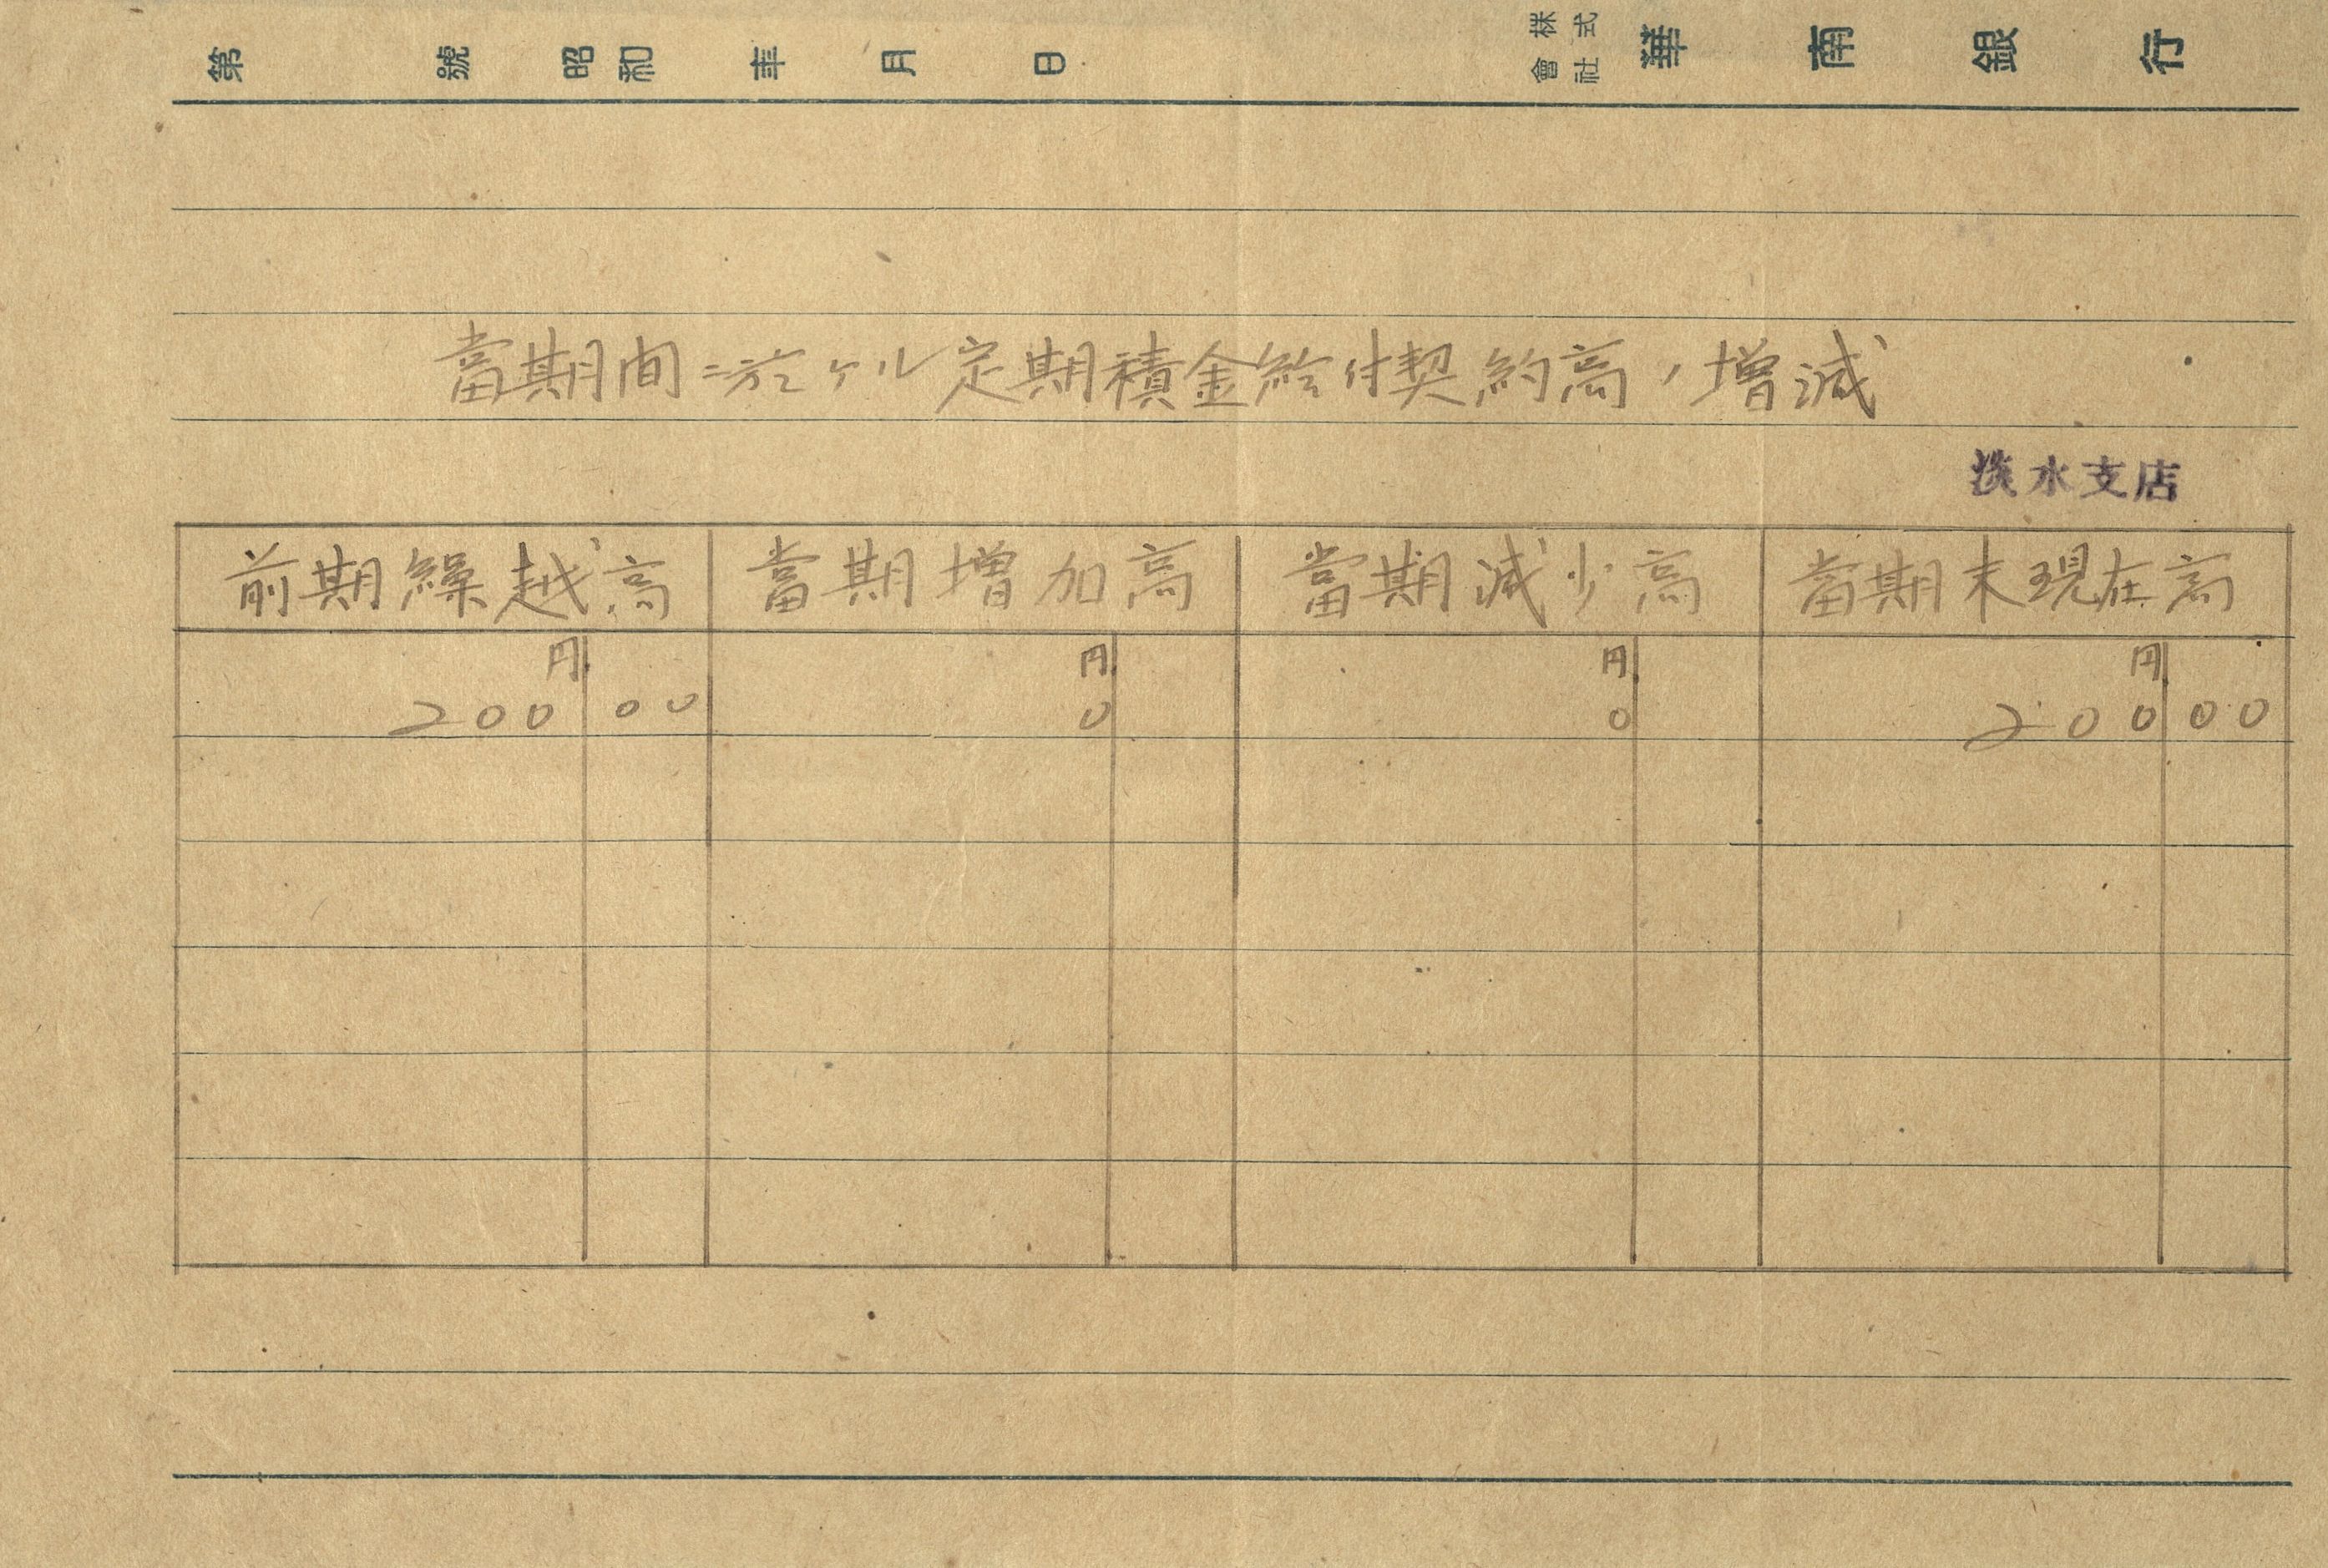 第 號 昭和 年 月 日 株式會社 華南銀行
當期間ニ於ケル定期積金給付契約高ノ増減
淡水支店
前期繰越高 當期増加高 當期減少高 當期末現在高
円 円 円 円
200 00 0 0 200 00